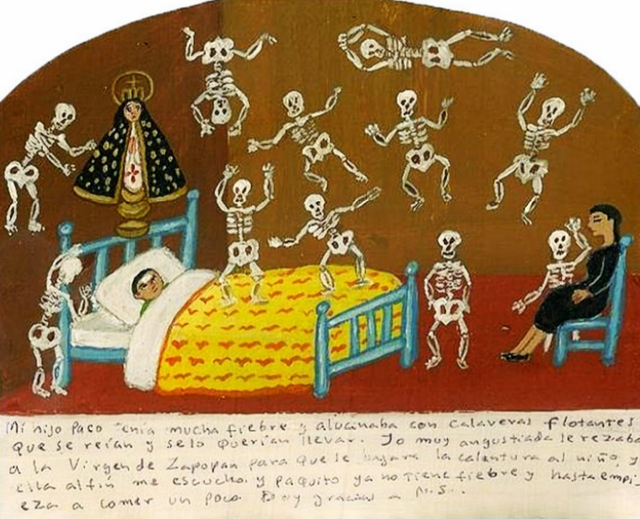 Mi hijo Paco tenia mucha fiebre y alucinaba con calaveras flotantes
que se reían y selo querían llevar. Yo muy angustiada le rezaba
a la Virgen de Zapopan para que le bajara la calentura al niño, y
ella al fin me escucho y paquito ya no tiene fiebre y hasta empi
eza a comer un poco Doy gracias a